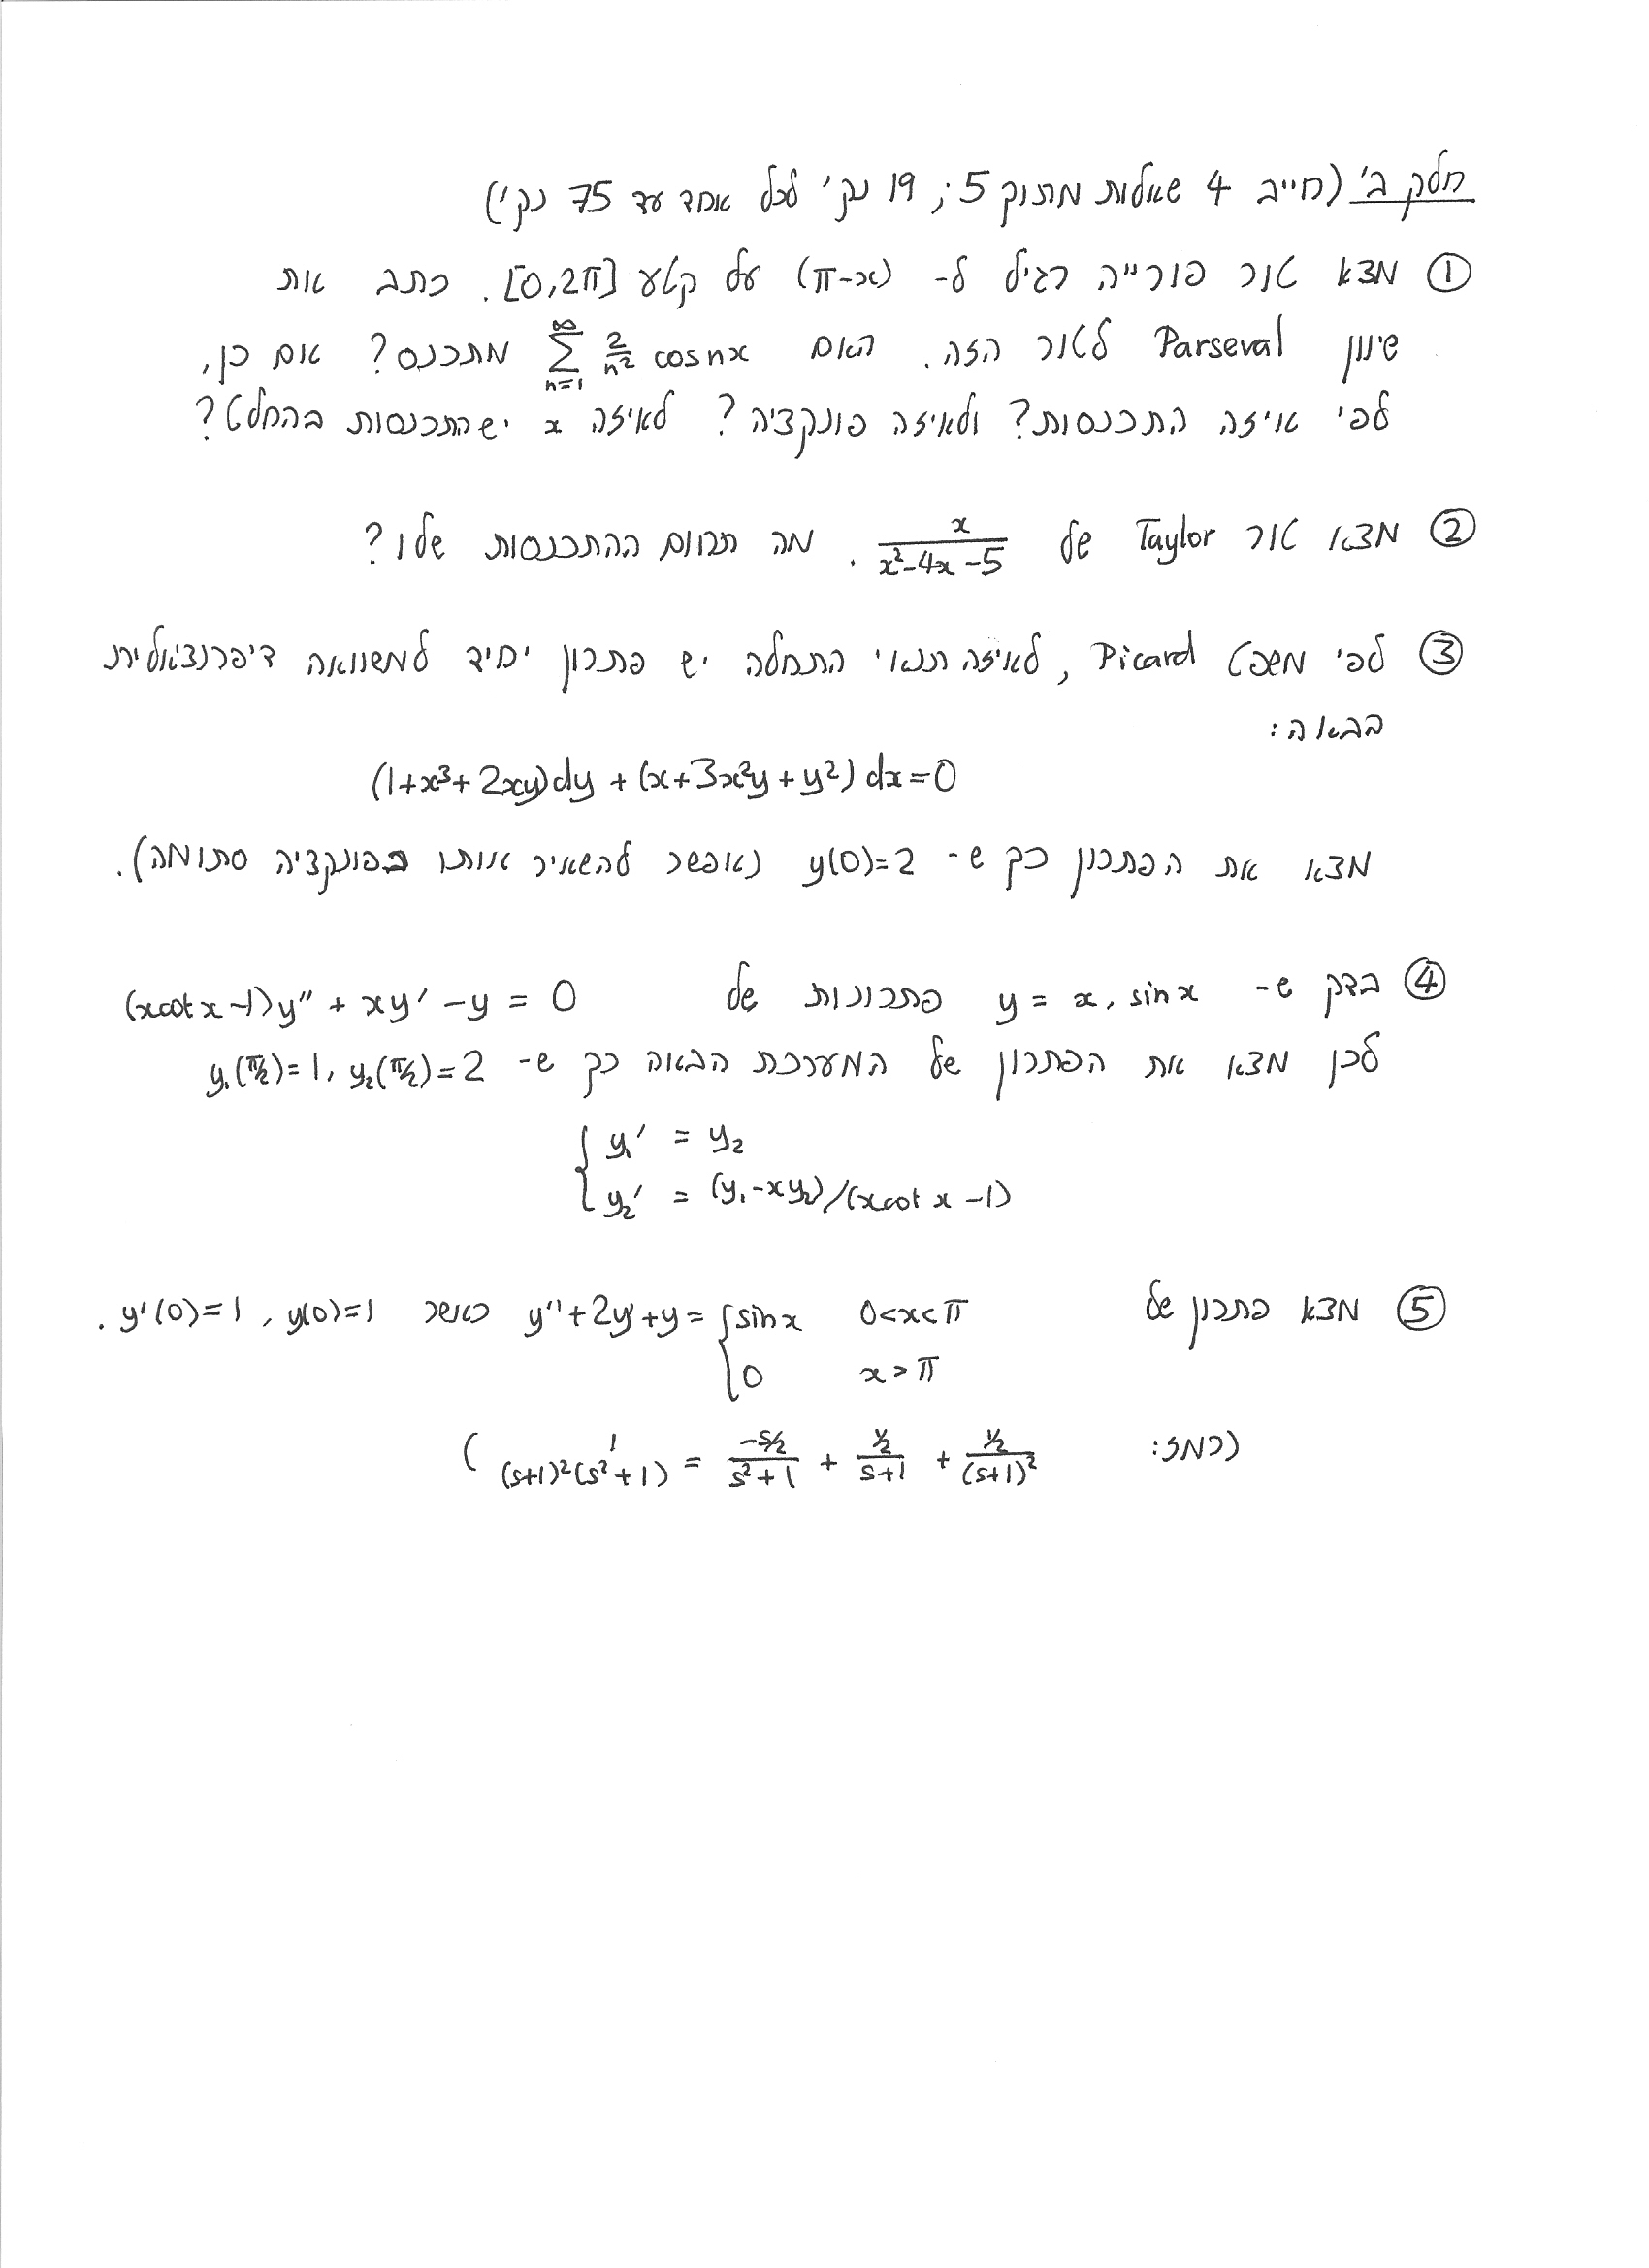 חלק ב' (חייב 4 שאלות מתוך 5; 19 נק' לכל אחד עד 75 נק')
① מצא טור פורייה רגיל ל- (π-x) על קטע [0,2π]. כתב את
שיוון Parseval לטור הזה. האם \sum_{n=1}^{∞} \frac{2}{n^2} cos nx מתכנס? אם כן,
לפי איזה התכנסות? ולאיזה פונקציה? לאיזה x יש התכנסות בהחלט?
② מצא טור Taylor של \frac{x}{x^2-4x-5}. מה תחום ההתכנסות שלו?
③ לפי משפט Picard, לאיזה תנאי התחלה יש פתרון יחיד למשוואה דיפרנציאלית
הבאה:
(1+x^3+2xy)dy + (x+3x^2y+y^2)dx=0
מצא את הפתרון כך ש- y(0)=2 (אפשר להשאיר אותו בפונקציה סתומה).
④ בדק ש- y = x, sin x פתרונות של (xcot x -1)y'' + xy' - y = 0
לכן מצא את הפתרון של המערכת הבאה כך ש- y_1(π/2)=1, y_2(π/2)=2
{ y_1' = y_2
y_2' = (y_1-xy_2)/(xcot x -1)
⑤ מצא פתרון של y''+2y'+y= { sin x 0<x<π כאשר y(0)=1, y'(0)=1.
0 x>π
(רמז: \frac{1}{(s+1)^2(s^2+1)} = \frac{-s/2}{s^2+1} + \frac{1/2}{s+1} + \frac{1/2}{(s+1)^2})